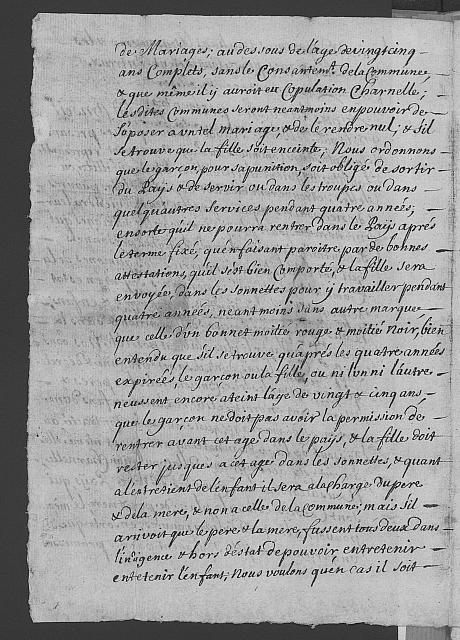 de Mariages; au dessous de l'age de vingt cinq
ans Complets, sans le Consantemt. de la Commune
& que même il ÿ auroit eu Copulation Charnelle;
les dites Communes seront neantmoins en pouvoir de
s'oposer a un tel mariage, & de le rendre nul; & s'il
se trouve que la fille soit enceinte; Nous ordonnons
que le garçon, pour sa punition, soit obligé de sortir
du Païs & de servir ou dans les troupes ou dans
quelqu'autres services pendant quatre années;
ensorte qu'il ne pourra rentrer dans le Païs aprés
le terme fixé, qu'en faisant paroitre par de bonnes
attestations, qu'il s'est bien Comporté, & la fille sera
envoyée, dans les sonnettes pour ÿ travailler pendant
quatre années, neantmoins sans autre marque
que celle d'un bonnet moitié rouge & moitié Noir, bien
entendu que s'il se trouve qu'aprés les quatre années
expirées, le garçon ou la fille, ou ni l'un ni l'autre
neussent encore ateint l'age de vingt & cinq ans
que le garçon ne doit pas avoir la permission de
rentrer avant cet age dans le païs, & la fille doit
rester jusques a cet age dans les sonnettes, & quant
a l'entretient de l'enfant il sera a la Charge du pere
& de la mere, & non a celle de la Commune; mais s'il
arrivoit que le pere & la mere, fussent tous deux dans
l'indigence & hors d'éstat de pouvoir entretenir
entetenir l'enfant; Nous voulons qu'en cas il soit